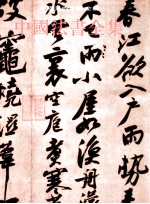 春江欲入户雨勢来
不雨小屋如漁舟濛
水雲裏空庖煮寒
破竈燒濕葦
中國法書全集